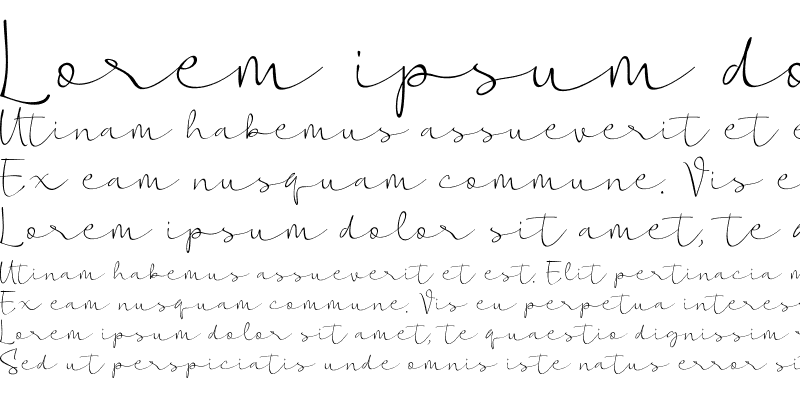 Lorem ipsum do
Utinam habemus assueverit et e
Ex eam nusquam commune. Vis e
Lorem ipsum dolor sit amet, te a
Utinam habemus assueverit et est. Elit pertinacia m
Ex eam nusquam commune. Vis eu perpetua interes
Lorem ipsum dolor sit amet, te quaestio dignissim r
Sed ut perspiciatis unde omnis iste natus error si